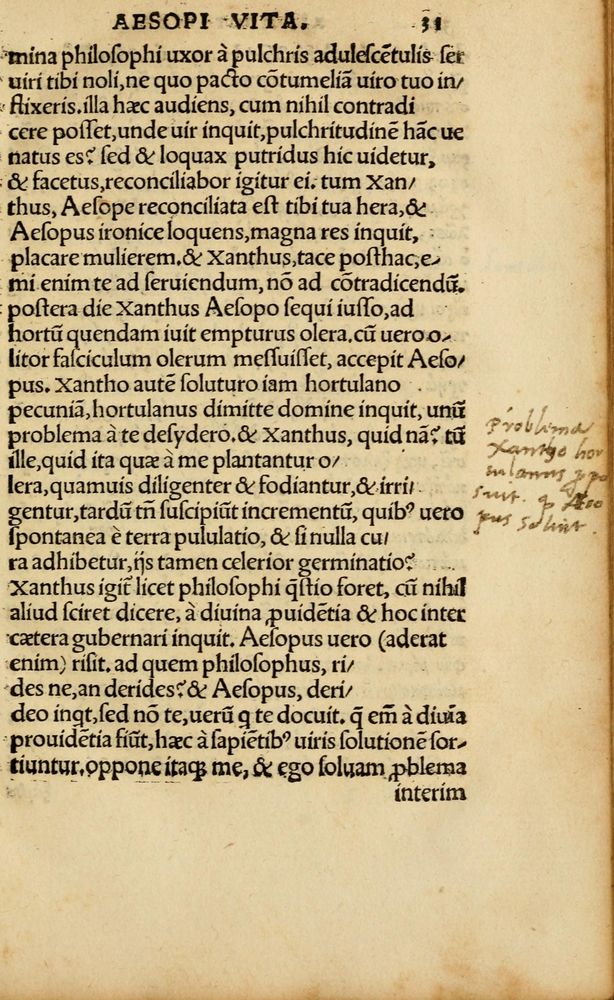 AESOPI VITA. 31
mina philosophi uxor à pulchris adulescẽtulis ser
uiri tibi noli, ne quo pacto cõtumeliã uiro tuo in/
flixeris. illa hæc audiens, cum nihil contradi
cere posset, unde uir inquit, pulchritudinẽ hãc ue
natus es? sed & loquax putridus hic uidetur,
& facetus, reconciliabor igitur ei. tum Xan/
thus, Aesope reconciliata est tibi tua hera, &
Aesopus ironice loquens, magna res inquit,
placare mulierem. & Xanthus, tace posthac, e-
mi enim te ad seruiendum, nõ ad cõtradicendũ.
postera die Xanthus Aesopo sequi iusso, ad
hortũ quendam iuit empturus olera. cũ uero o-
litor fasciculum olerum messuisset, accepit Aeso/
pus. Xantho autẽ soluturo iam hortulano
pecuniã, hortulanus dimitte domine inquit, unũ
problema à te desydero. & Xanthus, quid nã? tũ
ille, quid ita quæ à me plantantur o/
lera, quamuis diligenter & fodiantur, & irri/
gentur, tardũ tñ suscipiũt incrementũ, quibꝰ uero
spontanea è terra pululatio, & si nulla cu/
ra adhibetur, ijs tamen celerior germinatio?
Xanthus igit̃ licet philosophi q̃stio foret, cũ nihil
aliud sciret dicere, à diuina ꝓuidẽtia & hoc inter
cætera gubernari inquit. Aesopus uero (aderat
enim) risit. ad quem philosophus, ri/
des ne, an derides? & Aesopus, deri/
deo inq̃t, sed nõ te, uerũ q te docuit. q̃ em̃ à diuĩa
prouidẽtia fiũt, hæc à sapiẽtibꝰ uiris solutionẽ sor-
tiuntur. oppone itaq; me, & ego soluam ꝓblema
interim
Problema
Xantho hor
tulanus ꝓpo
suit. q Aeso
pus soluit.